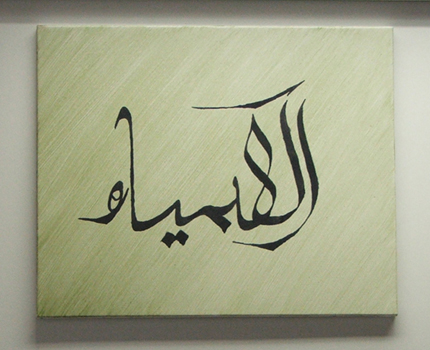 الكمياء